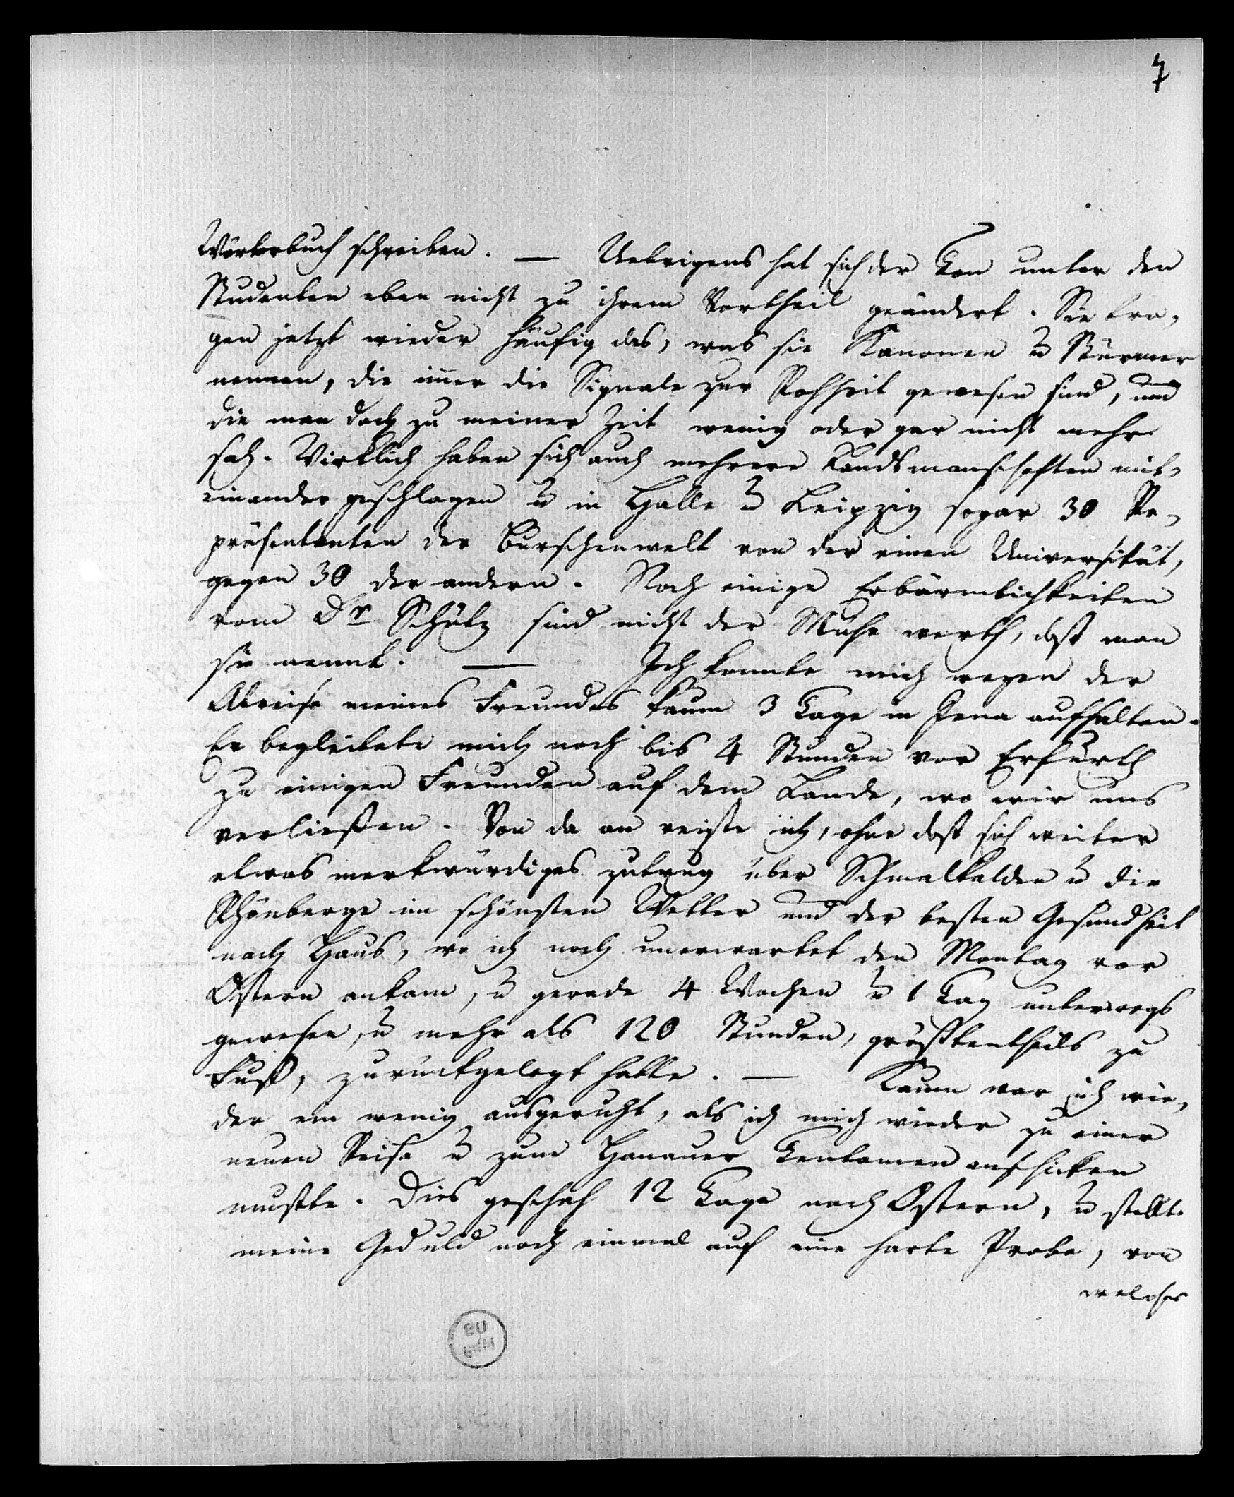 7
Wörterbuch schreiben. — Uebrigens hat sich der Ton unter den
Studenten eben nicht zu ihrem Vortheil geändert. Sie tra-
gen jetzt wieder häufig das, was sie Kanonen u Stürmer
nennen, die im̄er die Signale zur Rohheit gewesen sind, und
die man doch zu meiner Zeit wenig oder gar nicht mehr
sah. Wirklich haben sich auch mehrere Landsmanschaften mit-
einander geschlagen u in Halle u Leipzig sogar 30 Re-
präsentanten der Burschenwelt von der einen Universität,
gegen 30 der andern. Noch einige Erbärmlichkeiten
vom Dr Schütz sind nicht der Mühe werth, daß man
sie nennt. — Ich konnte mich wegen der
Abreise meines Freundes kaum 3 Tage in Jena aufhalten.
Er begleitete mich noch bis 4 Stunden vor Erfurth
zu einigen Freunden auf dem Lande, wo wir uns
verließen. Von da an reiste ich, ohne daß sich weiter
etwas merkwürdiges zutrug über Schmalkalden u die
Rhönberge im schönsten Wetter und der besten Gesundheit
nach Haus, wo ich noch unerwartet den Montag vor
Ostern ankam, u gerade 4 Wochen u 1 Tag unterwegs
gewesen, u mehr als 120 Stunden, größtentheils zu
Fuß, zurückgelegt hatte. — Kaum war ich wie-
der ein wenig ausgeruht, als ich mich wieder zu einer
neuen Reise u zum Hanauer Tentamen anschicken
mußte. Dies geschah 12 Tage nach Ostern, u stellte
meine Geduld noch einmal auf eine harte Probe, von
welcher